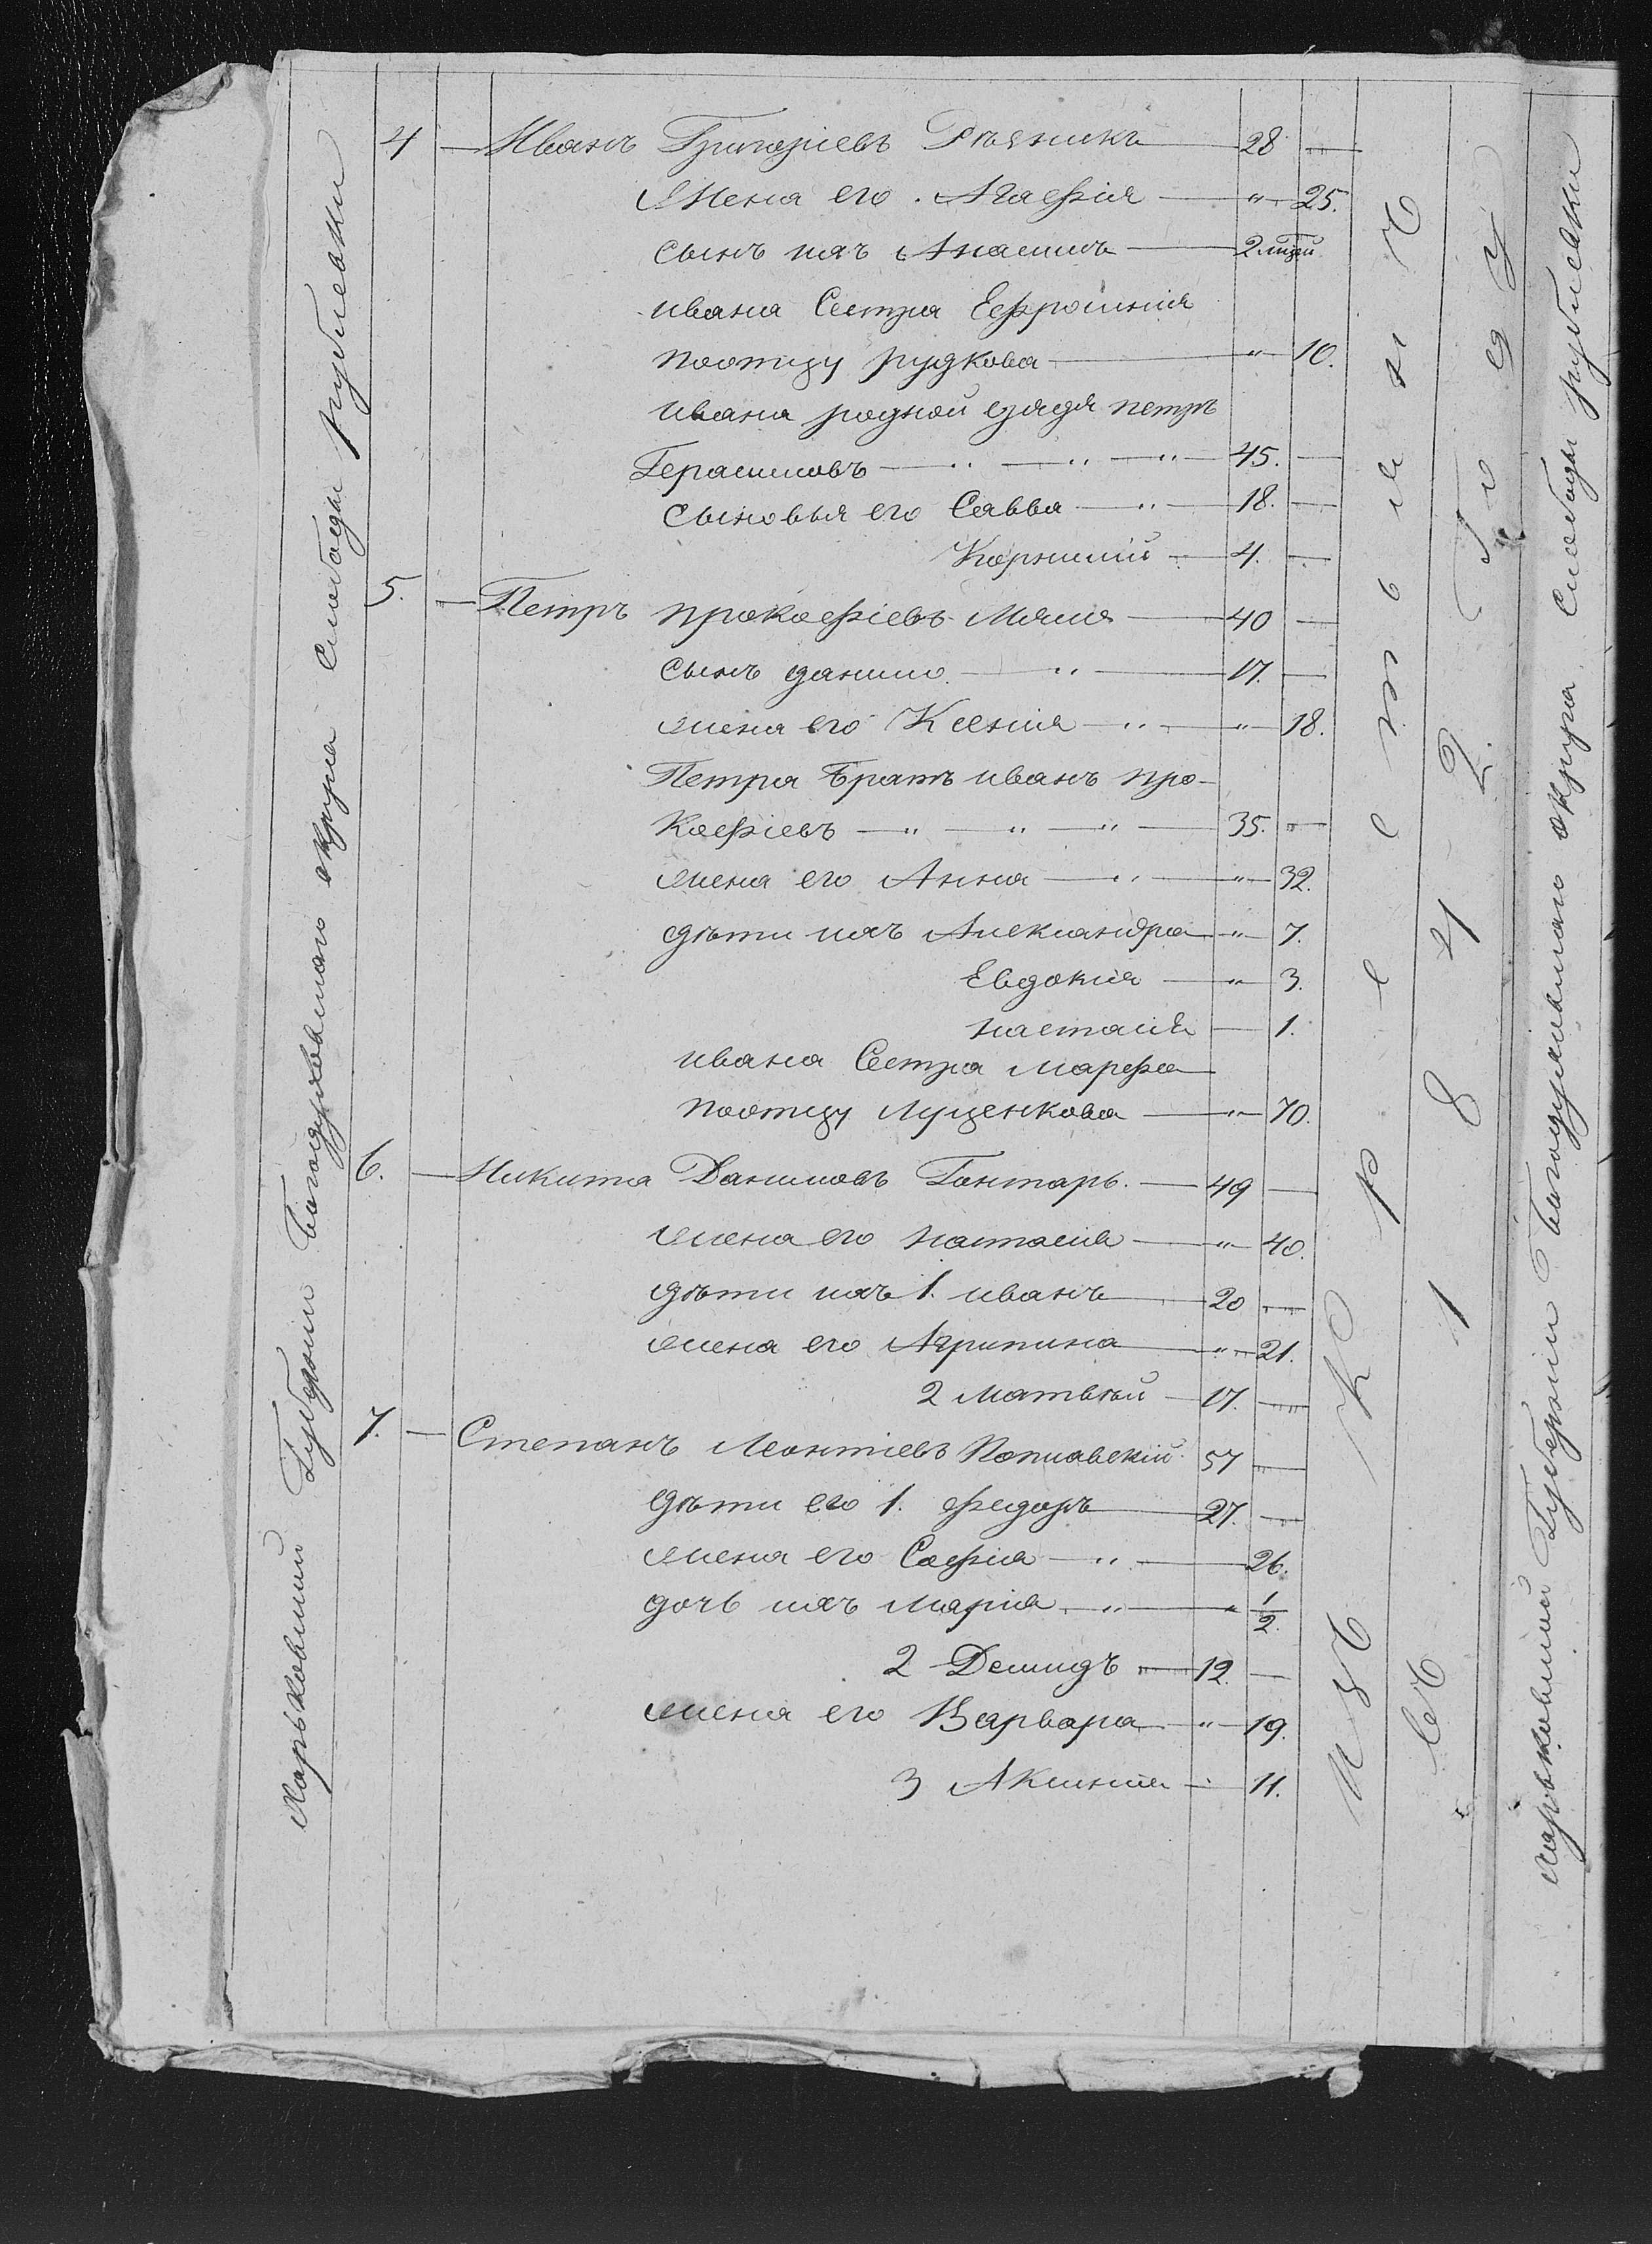 Харьковской Губернии Богодуховскаго округа слободы рублевки
4 — Иванъ Григоріевъ Рѣзникъ — 28 —
Жена его Агафія — " — 25.
сынъ ихъ — 2
ивана Сестра Ефросинія
поотцу рудкова — " — 10.
ивана родной дядя петръ
Герасимовъ — " — " — " — 45. —
Сыновья его Савва — " — 18. —
Корнилій — 4. —
5. — Петръ прокофіевъ — 40 —
сынъ данило — " — 17. —
жена его Ксенія — " — " — 18.
Петра Братъ иванъ про-
кофіевъ — " — " — " — 35. "
жена его Анна — " — " — 32.
дѣти ихъ Александра — " — 7.
Евдокия — " — 3.
настасія — 1.
ивана Сестра марфа
поотцу луценкова — " — 70.
6. — Никита Даниловъ Гонтарь — 49 —
жена его настасія — " — 40.
дѣти ихъ 1. иванъ — 20 —
жена его Агрипина — " — 21.
2 матвѣй — 17. —
7. — Степанъ Леонтіевъ Поплавскій 57 —
дѣти его 1. федоръ — 27. —
жена его Софія — " — 26.
дочь ихъ марія — " — " 1/2.
2 Демидъ — 19. —
жена его Варвара — " — 19.
3 Аксинія — 11.
изъ крестьянъ
въ 1842 Году
Харьковской Губерніи Богодуховскаго округа Слободы рублевки